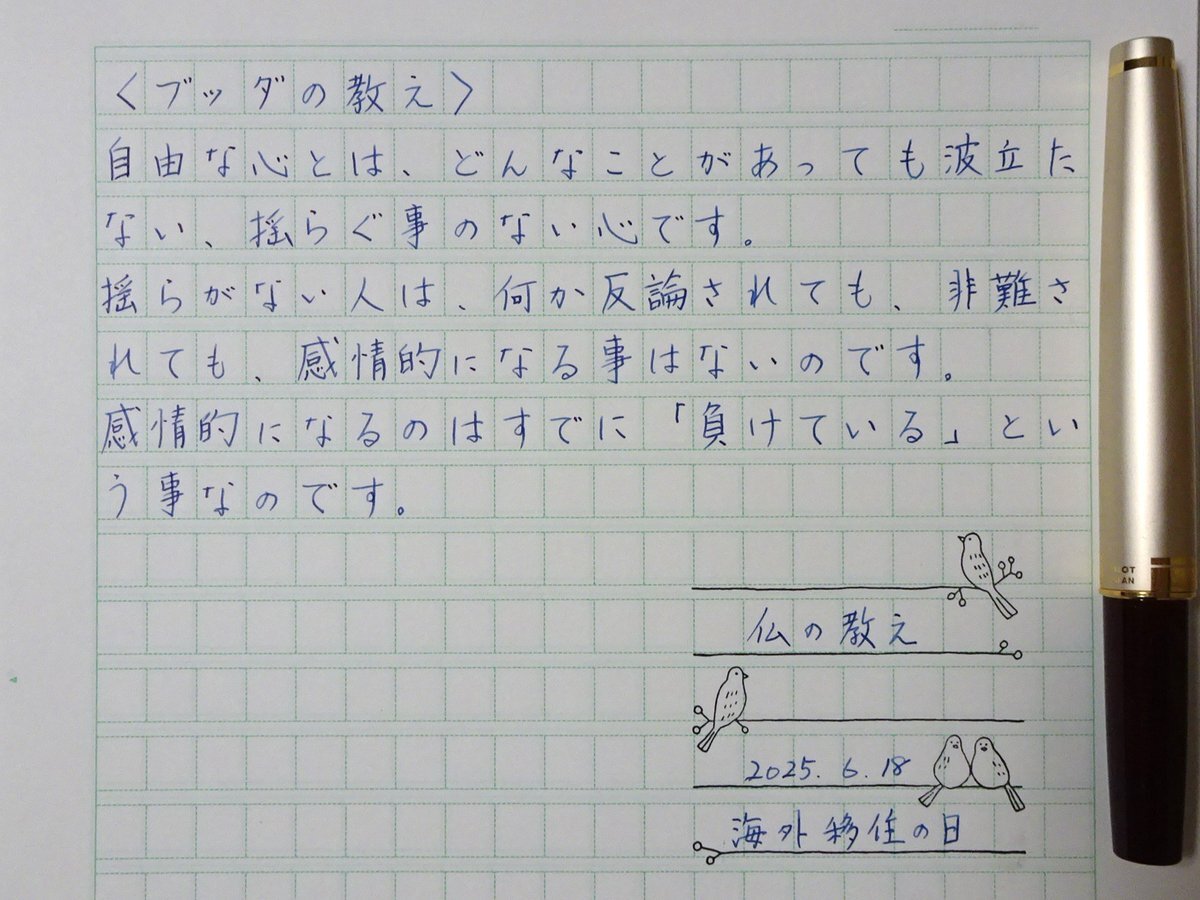 〈ブッダの教え〉
自由な心とは、どんなことがあっても波立た
ない、揺らぐ事のない心です。
揺らがない人は、何か反論されても、非難さ
れても、感情的になる事はないのです。
感情的になるのはすでに「負けている」とい
う事なのです。
仏の教え
2025.6.18
海外移住の日